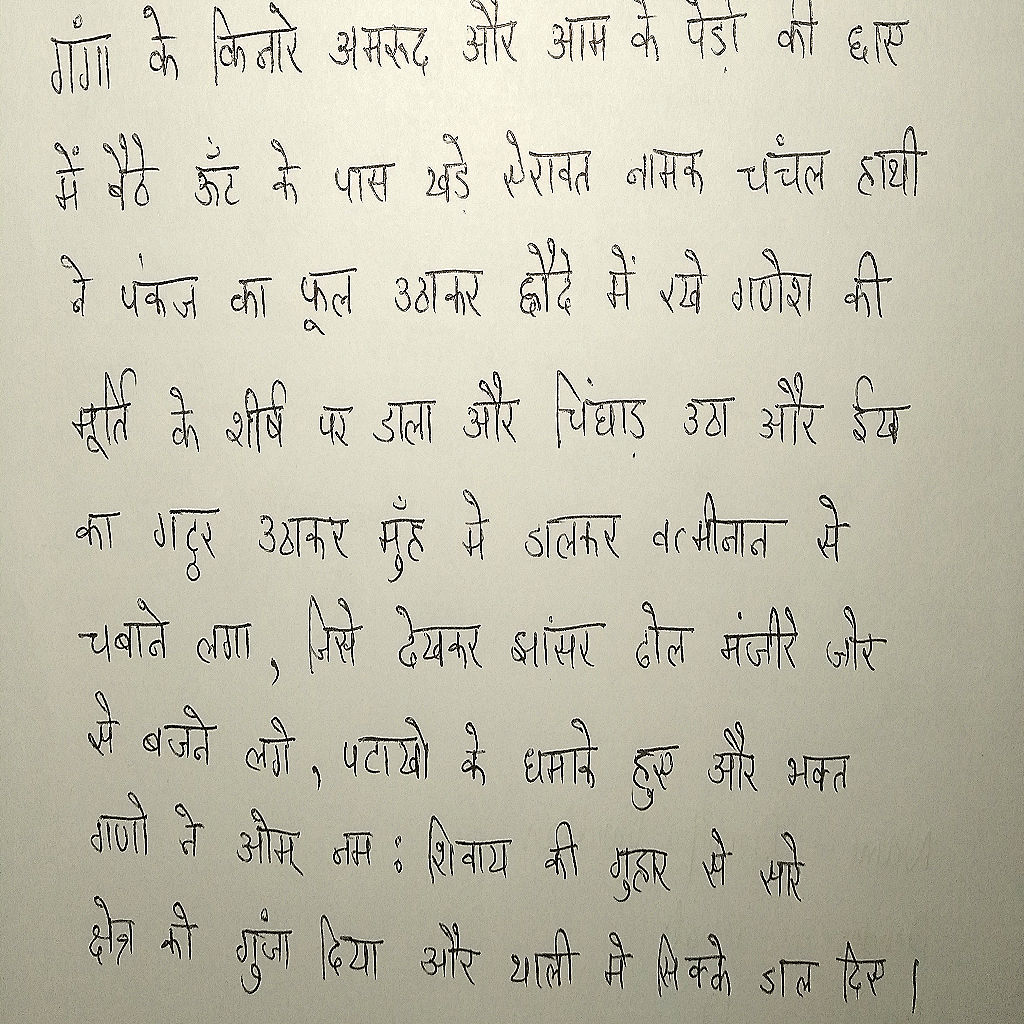 गंगा के किनारे अमरूद और आम के पेड़ो की छाए
में बैठे ऊँट के पास खड़े ऐरावत नामक चंचल हाथी
ने पंकज का फूल उठाकर हौदे में रखे गणेश की
मूर्ति के शीर्ष पर डाला और चिंघाड़ उठा और ईख
का गट्ठर उठाकर मुँह मे डालकर से
चबाने लगा, जिसे देखकर झांसर ढोल मंजीरे जोर
से बजने लगे, पटाखो के धमाके हुए और भक्त
गणो ने ओम् नम: शिवाय की गुहार से सारे
क्षेत्र को गुंजा दिया और थाली मे सिक्के डाल दिए।